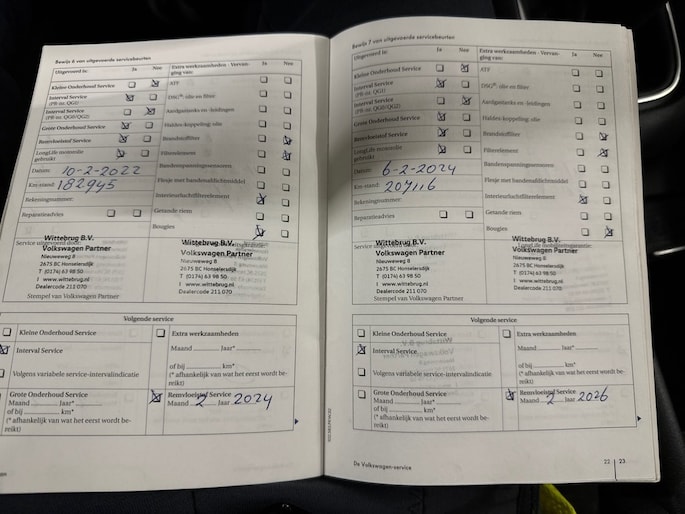 Bewijs 6 van uitgevoerde servicebeurten
Uitgevoerd is: Ja Nee
Kleine Onderhoud Service
Interval Service
(PR-nr. QG1)
Interval Service
(PR-nr. QG0/QG2)
Grote Onderhoud Service
Remvloeistof Service
LongLife motorolie
gebruikt
Datum: 10-2-2022
Km-stand: 182945
Rekeningnummer:
Reparatieadvies
Extra werkzaamheden - Vervan-
ging van: Ja Nee
ATF
DSG®-olie en filter
Aardgastanks en -leidingen
Haldex-koppeling: olie
Brandstoffilter
Filterelement
Bandenspanningssensoren
Flesje met bandenafdichtmiddel
Interieurluchtfilterelement
Getande riem
Bougies
Service uitgevoerd door:
Wittebrug B.V.
Volkswagen Partner
Nieuweweg 8
2675 BC Honselersdijk
T (0174) 63 98 50
I www.wittebrug.nl
Dealercode 211 070
Stempel van Volkswagen Partner
Wittebrug B.V.
Volkswagen Partner
Nieuweweg 8
2675 BC Honselersdijk
T (0174) 63 98 50
I www.wittebrug.nl
Dealercode 211 070
Volgende service
Kleine Onderhoud Service
Interval Service
Volgens variabele service-intervalindicatie
Grote Onderhoud Service
Maand Jaar*
of bij km*
(* afhankelijk van wat het eerst wordt be-
reikt)
Extra werkzaamheden
Maand Jaar*
of bij km*
(* afhankelijk van wat het eerst wordt be-
reikt)
Remvloeistof Service
Maand 2 Jaar 2024
Bewijs 7 van uitgevoerde servicebeurten
Uitgevoerd is: Ja Nee
Kleine Onderhoud Service
Interval Service
(PR-nr. QG1)
Interval Service
(PR-nr. QG0/QG2)
Grote Onderhoud Service
Remvloeistof Service
LongLife motorolie
gebruikt
Datum: 6-2-2024
Km-stand: 207116
Rekeningnummer:
Reparatieadvies
Extra werkzaamheden - Vervan-
ging van: Ja Nee
ATF
DSG®-olie en filter
Aardgastanks en -leidingen
Haldex-koppeling: olie
Brandstoffilter
Filterelement
Bandenspanningssensoren
Flesje met bandenafdichtmiddel
Interieurluchtfilterelement
Getande riem
Bougies
Service
Wittebrug B.V.
Volkswagen Partner
Nieuweweg 8
2675 BC Honselersdijk
T (0174) 63 98 50
I www.wittebrug.nl
Dealercode 211 070
Stempel van Volkswagen Partner
LongLife mobiliteitsgarantie:
Wittebrug B.V.
Volkswagen Partner
Nieuweweg 8
2675 BC Honselersdijk
T (0174) 63 98 50
I www.wittebrug.nl
Dealercode 211 070
Volgende service
Kleine Onderhoud Service
Interval Service
Volgens variabele service-intervalindicatie
Grote Onderhoud Service
Maand Jaar*
of bij km*
(* afhankelijk van wat het eerst wordt be-
reikt)
Extra werkzaamheden
Maand Jaar*
of bij km*
(* afhankelijk van wat het eerst wordt be-
reikt)
Remvloeistof Service
Maand 2 Jaar 2026
De Volkswagen-service
22 23